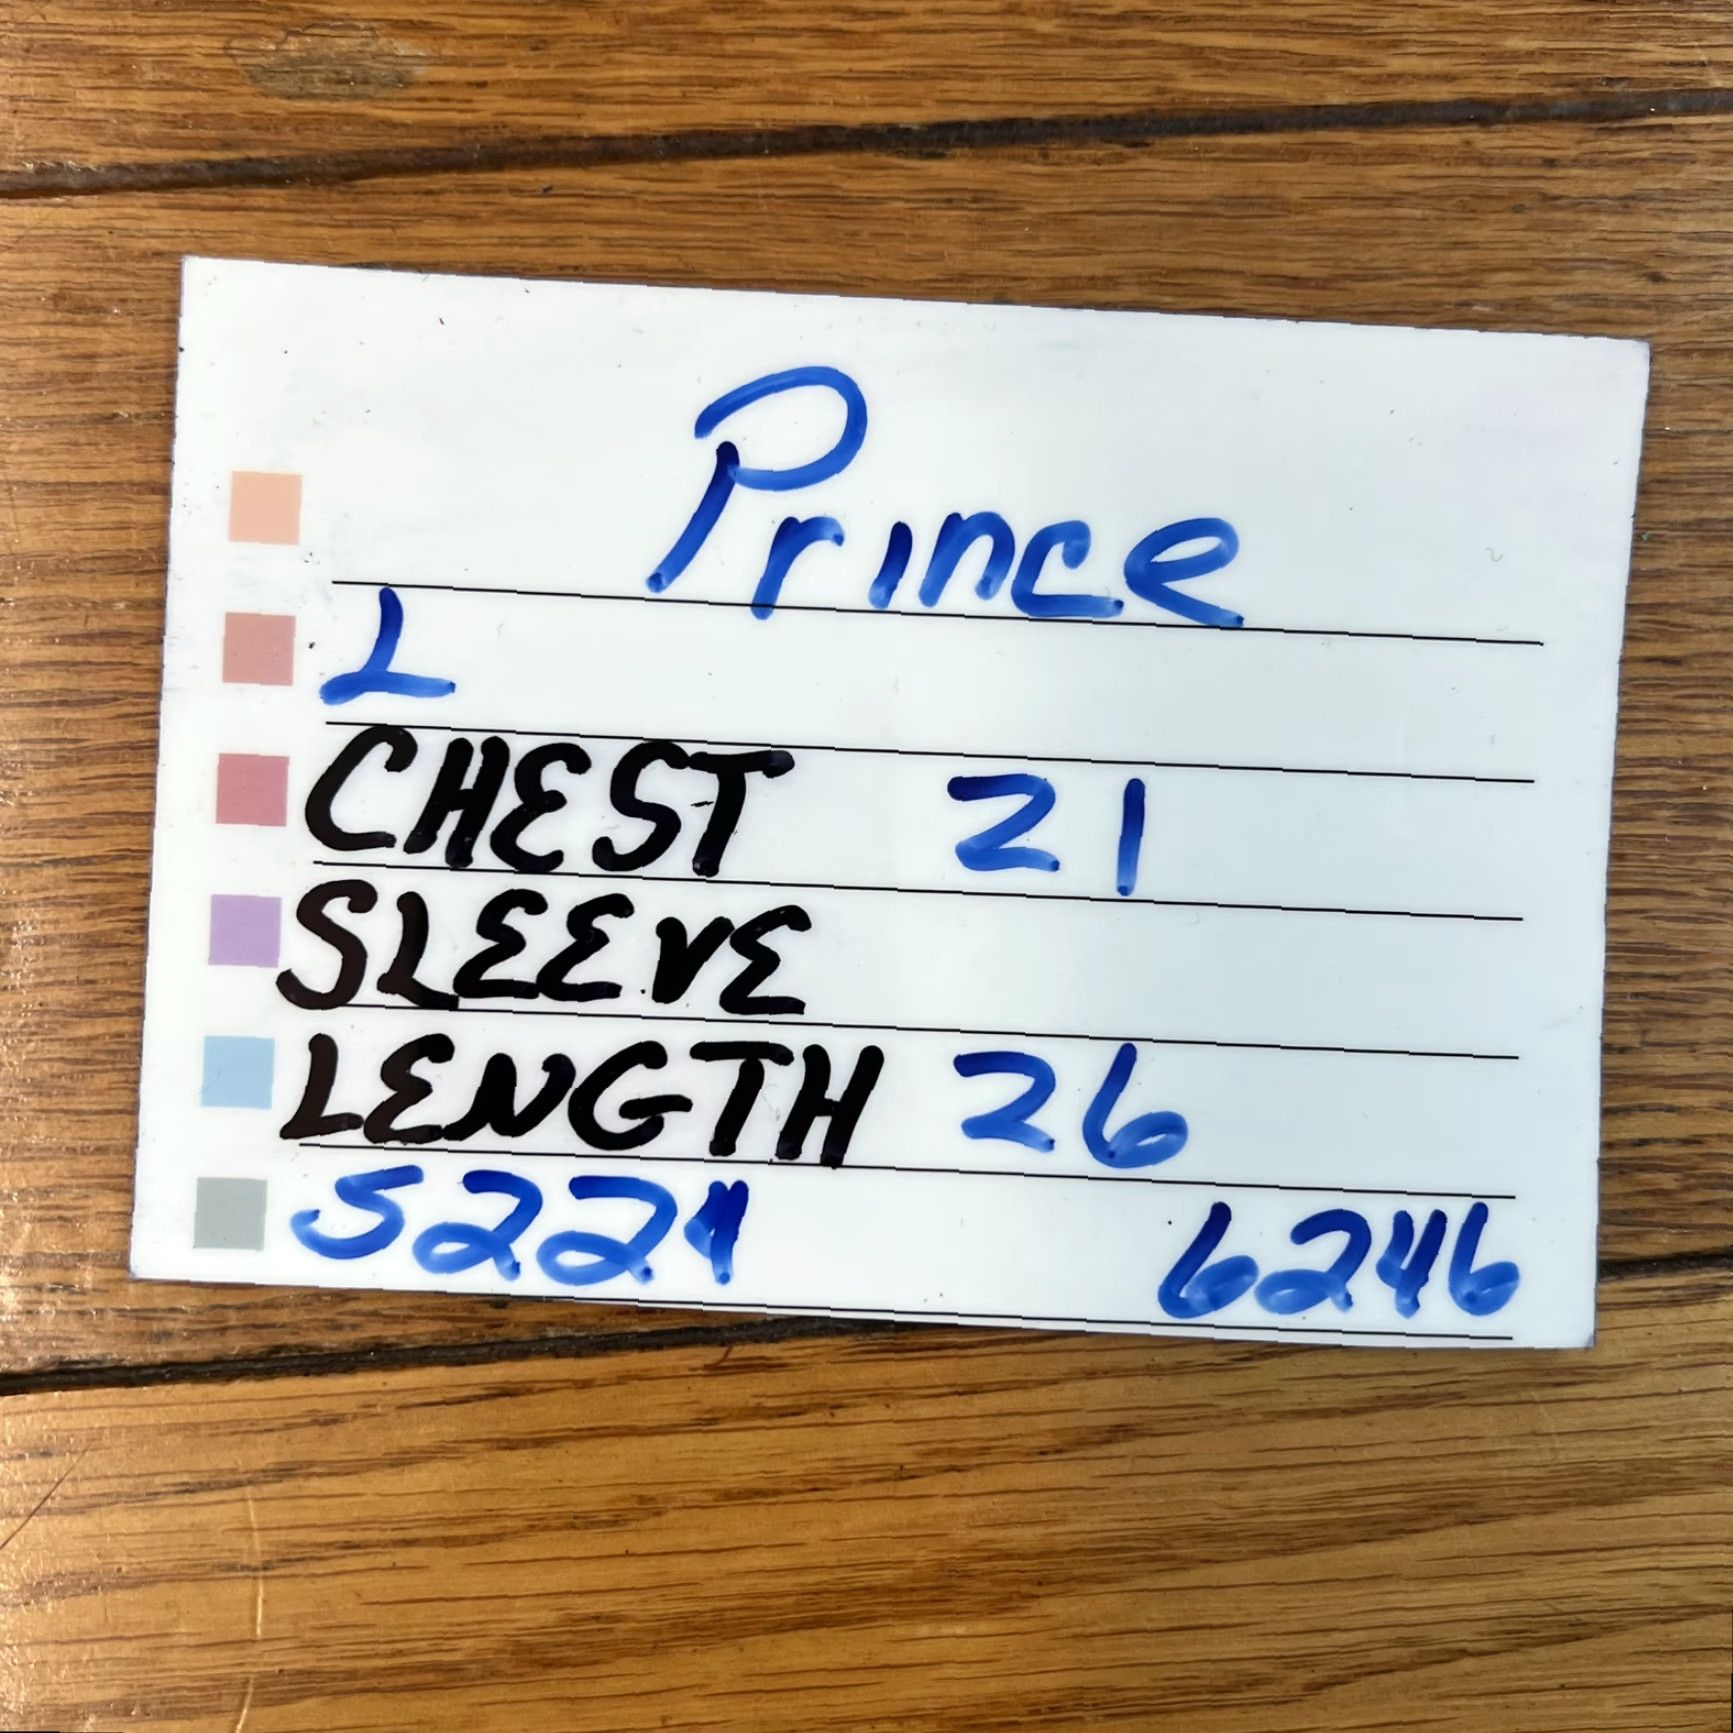 Prince
L
CHEST 21
SLEEVE
LENGTH 26
5224 6246